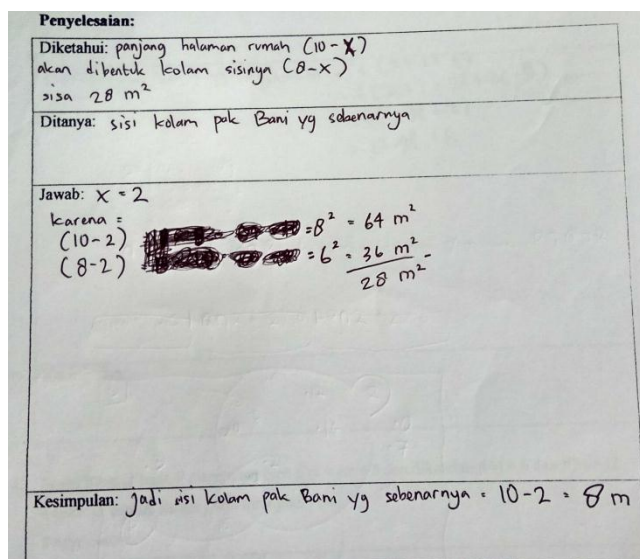 Penyelesaian:
Diketahui: panjang halaman rumah (10-X)
akan dibentuk kolam sisinya (8-x)
sisa 28 m²
Ditanya: sisi kolam pak Bani yg sebenarnya
Jawab: X = 2
karena =
(10-2) =8² = 64 m²
(8-2) =6² = 36 m² -
28 m²
Kesimpulan: jadi sisi kolam pak Bani yg sebenarnya = 10-2 = 8 m